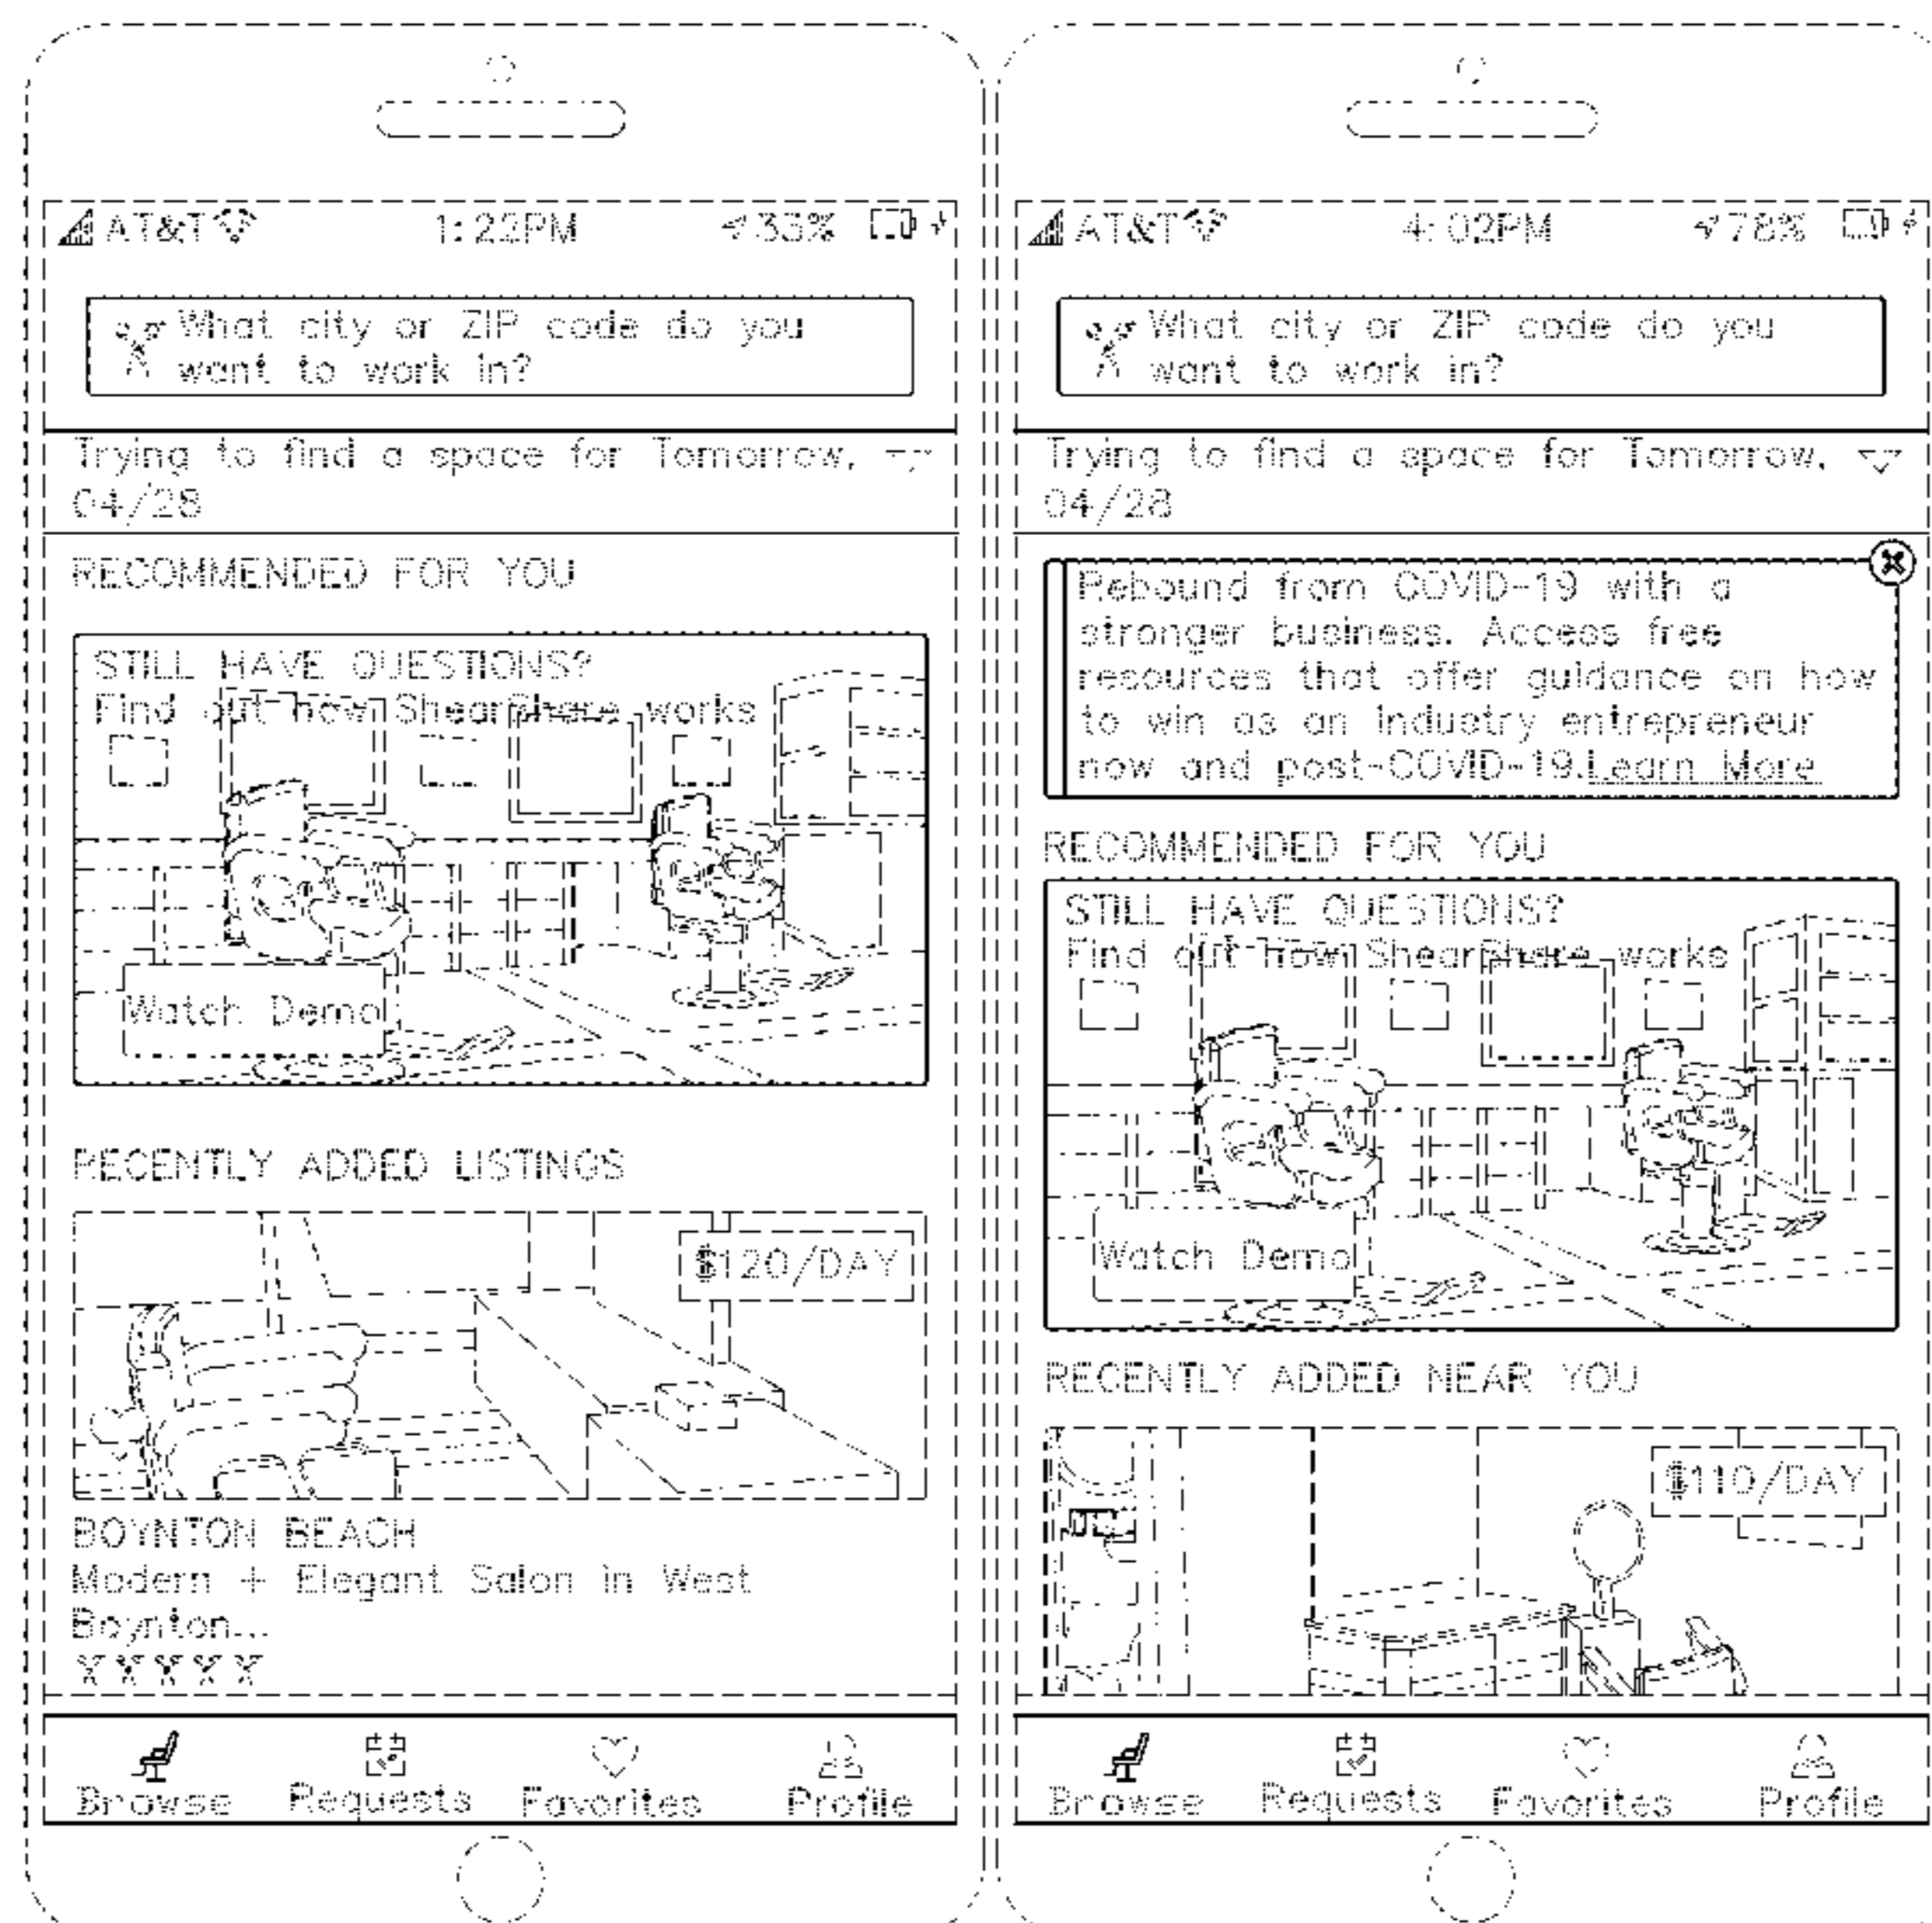 AT&T 1:22PM 33%
What city or ZIP code do you
want to work in?
Trying to find a space for Tomorrow,
04/28
RECOMMENDED FOR YOU
STILL HAVE QUESTIONS?
Find out how ShearShare works
Watch Demo
RECENTLY ADDED LISTINGS
$120/DAY
BOYNTON BEACH
Modern + Elegant Salon in West
Boynton...
Browse Requests Favorites Profile
AT&T 4:02PM 78%
What city or ZIP code do you
want to work in?
Trying to find a space for Tomorrow,
04/28
Rebound from COVID-19 with a
stronger business. Access free
resources that offer guidance on how
to win as an industry entrepreneur
now and post-COVID-19.Learn More
RECOMMENDED FOR YOU
STILL HAVE QUESTIONS?
Find out how ShearShare works
Watch Demo
RECENTLY ADDED NEAR YOU
$110/DAY
Browse Requests Favorites Profile